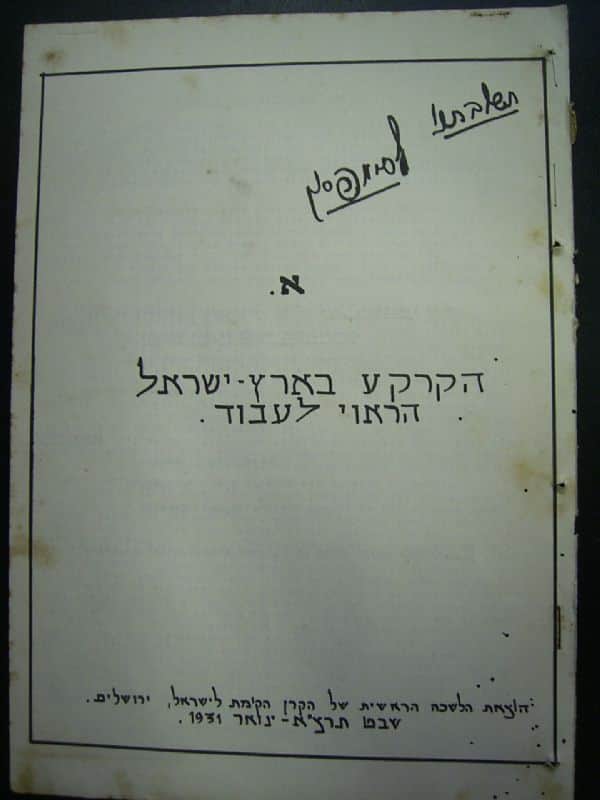 תשובתנו
לסימפסון
א.
הקרקע בארץ-ישראל
הראוי לעבוד.
הוצאת הלשכה הראשית של הקרן הקימת לישראל, ירושלים.
שבט תרצ"א - ינואר 1931.